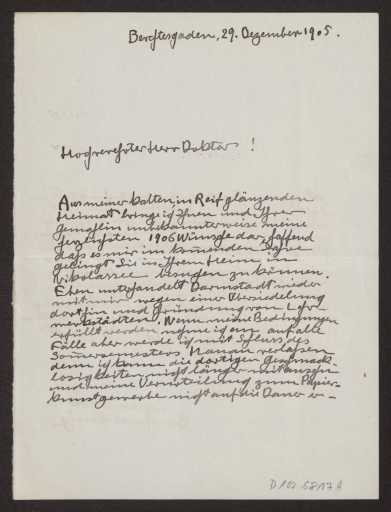 Berchtesgaden, 29. Dezember 1905.
Hochverehrter Herr Doktor!
Aus meiner kalten, in Reif glänzenden
Heimat bringe ich Ihnen und Ihrer
Gemahlin unbekannterweise meine
herzlichsten 1906 Wünsche dar, hoffend
daß es mir im kommenden Jahre
gelingt Sie in Ihrem Heim in
Nikolassee besuchen zu können.
Eben unterhandelt Darmstadt wieder
mit mir wegen einer Übersiedelung
dorthin und Gründung von Lehr-
werkstätten. Wenn meine Bedingungen
erfüllt werden, nehme ich an auf alle
Fälle aber werde ich mit Schluss des
Sommersemesters Hanau verlassen
denn ich kann die dortigen Geschmack-
losigkeiten nicht länger mit ansehn
und meine Verurteilung zum Papier-
kunstgewerbe nicht auf die Dauer
D 102.5817 A